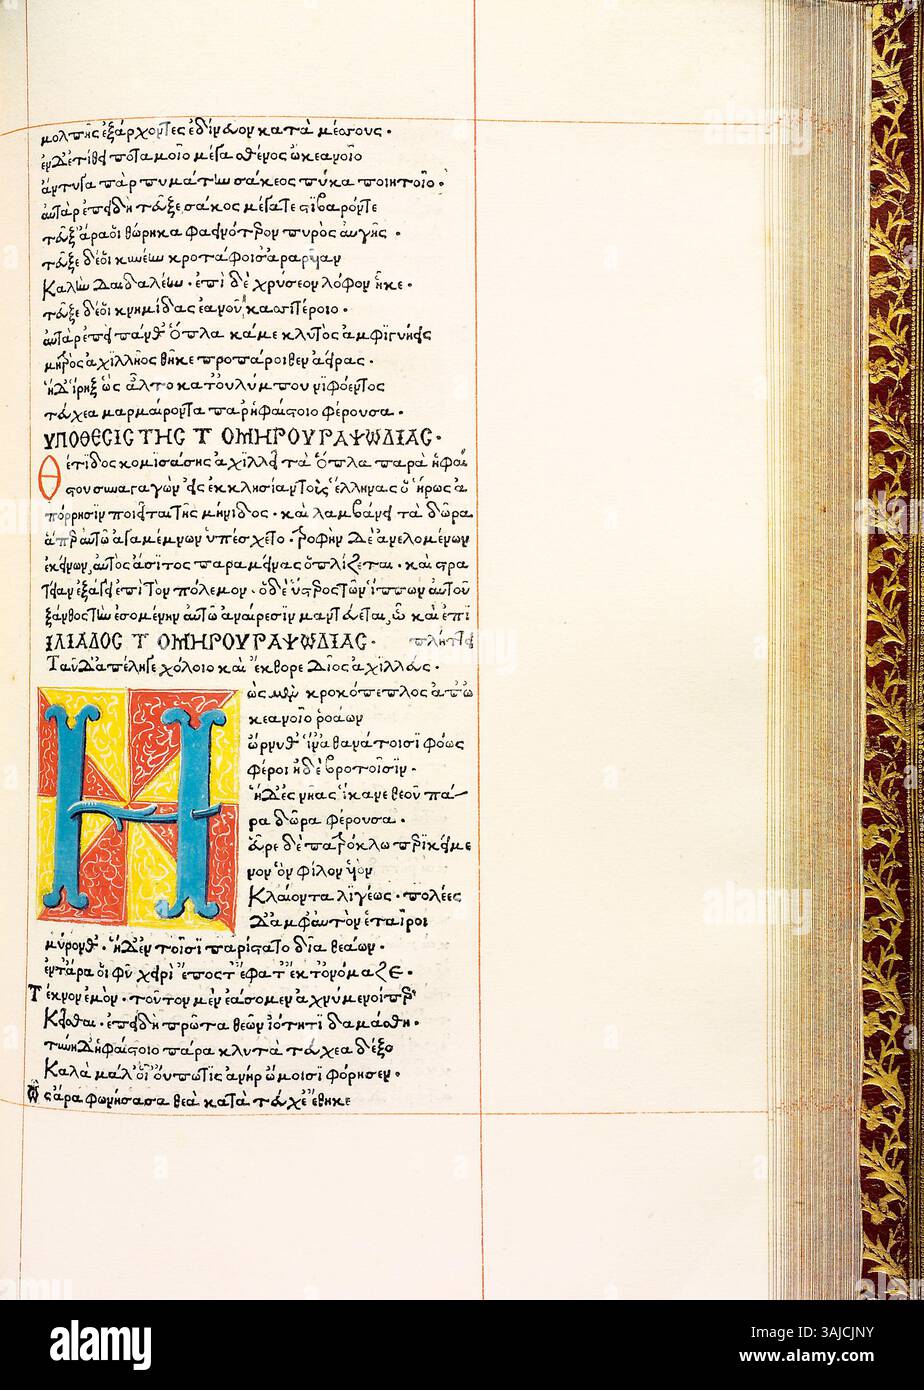 μολπῆς ἐξάρχοντες ἐδίνευον κατὰ μέσσους.
ἐν δ' ἐτίθει ποταμοῖο μέγα σθένος ὠκεανοῖο
ἄντυγα πὰρ πυμάτην σάκεος πύκα ποιητοῖο.
αὐτὰρ ἐπειδὴ τεῦξε σάκος μέγα τε στιβαρόν τε
τεῦξ' ἄρα οἱ θώρηκα φαεινότερον πυρὸς αὐγῆς.
τεῦξε δέ οἱ κροτάφοις ἀραρυῖαν
Καλὴν δαιδαλέην. ἐπὶ δὲ χρύσεον λόφον ἧκε.
τεῦξε δέ οἱ κνημίδας ἑανοῦ κασσιτέροιο.
αὐτὰρ ἐπεὶ πάνθ' ὅπλα κάμε κλυτὸς ἀμφιγυήεις
μητρὸς ἀχιλλῆος θῆκε προπάροιθεν ἀείρας.
ἡ δ' ἴρηξ ὣς ἆλτο κατ' οὐλύμπου νιφόεντος
τεύχεα μαρμαίροντα παρ' ἡφαίστοιο φέρουσα.
ΥΠΟΘΕΣΙΣ ΤΗΣ Τ ΟΜΗΡΟΥ ΡΑΨΩΔΙΑΣ.
Θέτιδος κομισάσης ἀχιλλεῖ τὰ ὅπλα παρὰ ἡφαί
στου συναγαγὼν εἰς ἐκκλησίαν τοὺς ἕλληνας ὁ ἥρως ἀ
πόρρησιν ποιεῖται τῆς μήνιδος. καὶ λαμβάνει τὰ δῶρα
ἅπερ αὐτῷ ἀγαμέμνων ὑπέσχετο. τροφὴν δὲ ἀνελομένων
ἐκείνων, αὐτὸς ἄσιτος παραμείνας ὁπλίζεται. καὶ στρα
τείαν ἐξάγει ἐπὶ τὸν πόλεμον. ὁ δὲ τῶν ἵππων αὐτοῦ
ξάνθος τὴν ἐσομένην αὐτῷ ἀναίρεσιν μαντεύεται, ᾧ καὶ ἐπι
ΙΛΙΑΔΟΣ Τ ΟΜΗΡΟΥ ΡΑΨΩΔΙΑΣ. πλήττει
Ταῦ δ' ἀπέληγε χόλοιο καὶ ἔκθορε δῖος ἀχιλλεύς.
Ἠὼς μὲν κροκόπεπλος ἀπ' ὠ
κεανοῖο ῥοάων
ὤρνυθ' ἵν' ἀθανάτοισι φόως
φέροι ἠδὲ βροτοῖσιν.
ἡ δ' ἐς νῆας ἵκανε θεοῦ πά-
ρα δῶρα φέρουσα.
εὗρε δὲ πατρόκλῳ περικείμε
νον ὃν φίλον υἱὸν
Κλαίοντα λιγέως. πολέες
δ' ἀμφ' αὐτὸν ἑταῖροι
μύρονθ'. ἡ δ' ἐν τοῖσι παρίστατο δῖα θεάων.
ἔν τ' ἄρα οἱ φῦ χειρὶ ἔπος τ' ἔφατ' ἔκ τ' ὀνόμαζε.
Τέκνον ἐμὸν. τοῦτον μὲν ἐάσομεν ἀχνύμενοί περ
Κεῖσθαι. ἐπειδὴ πρῶτα θεῶν ἰότητι δαμάσθη.
τύνη δ' ἡφαίστοιο πάρα κλυτὰ τεύχεα δέξο
Καλὰ μάλ' οἷ' οὔ πώ τις ἀνὴρ ὤμοισι φόρησεν.
Ὣς ἄρα φωνήσασα θεὰ κατὰ τεύχε' ἔθηκε
alamy
Image ID: 3AJCJNY
www.alamy.com